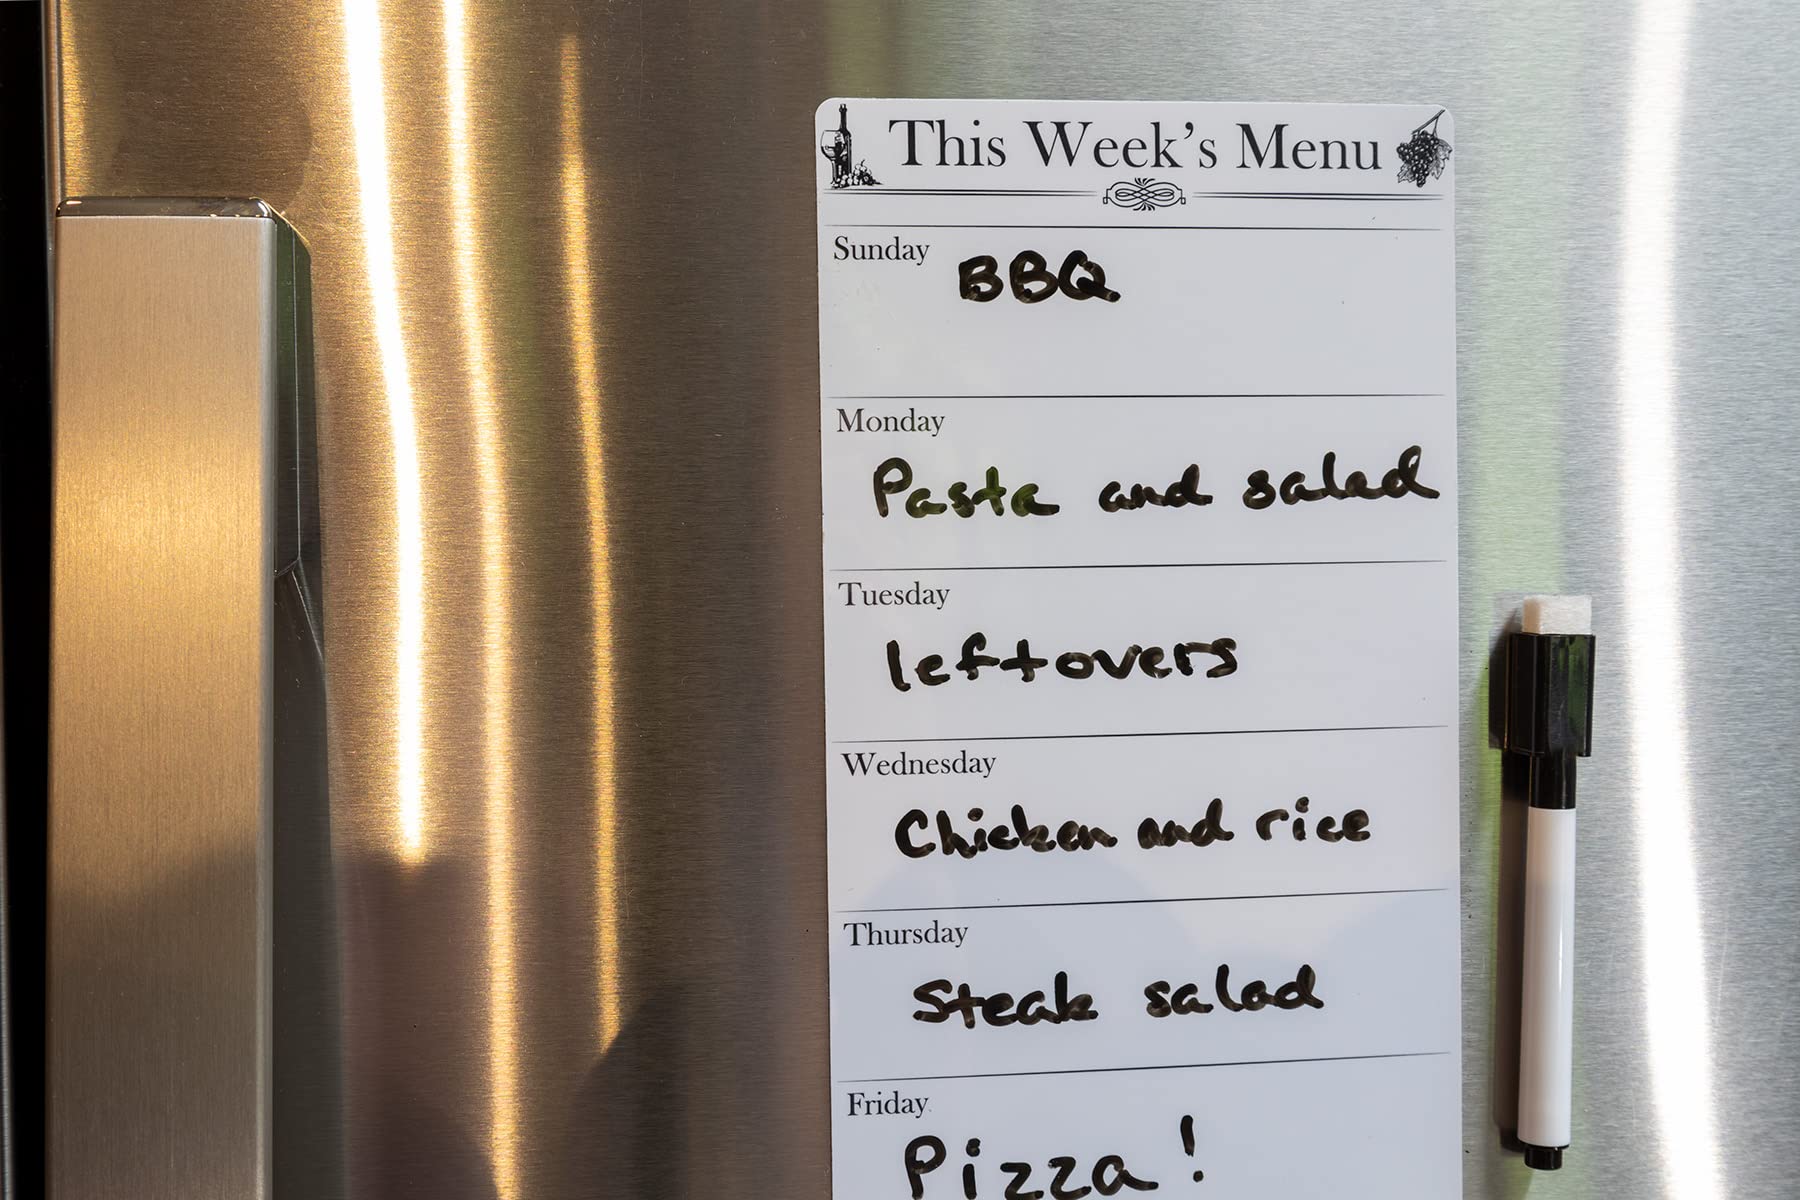 This Week's Menu
Sunday
BBQ
Monday
Pasta and salad
Tuesday
leftovers
Wednesday
Chicken and rice
Thursday
Steak salad
Friday
Pizza!